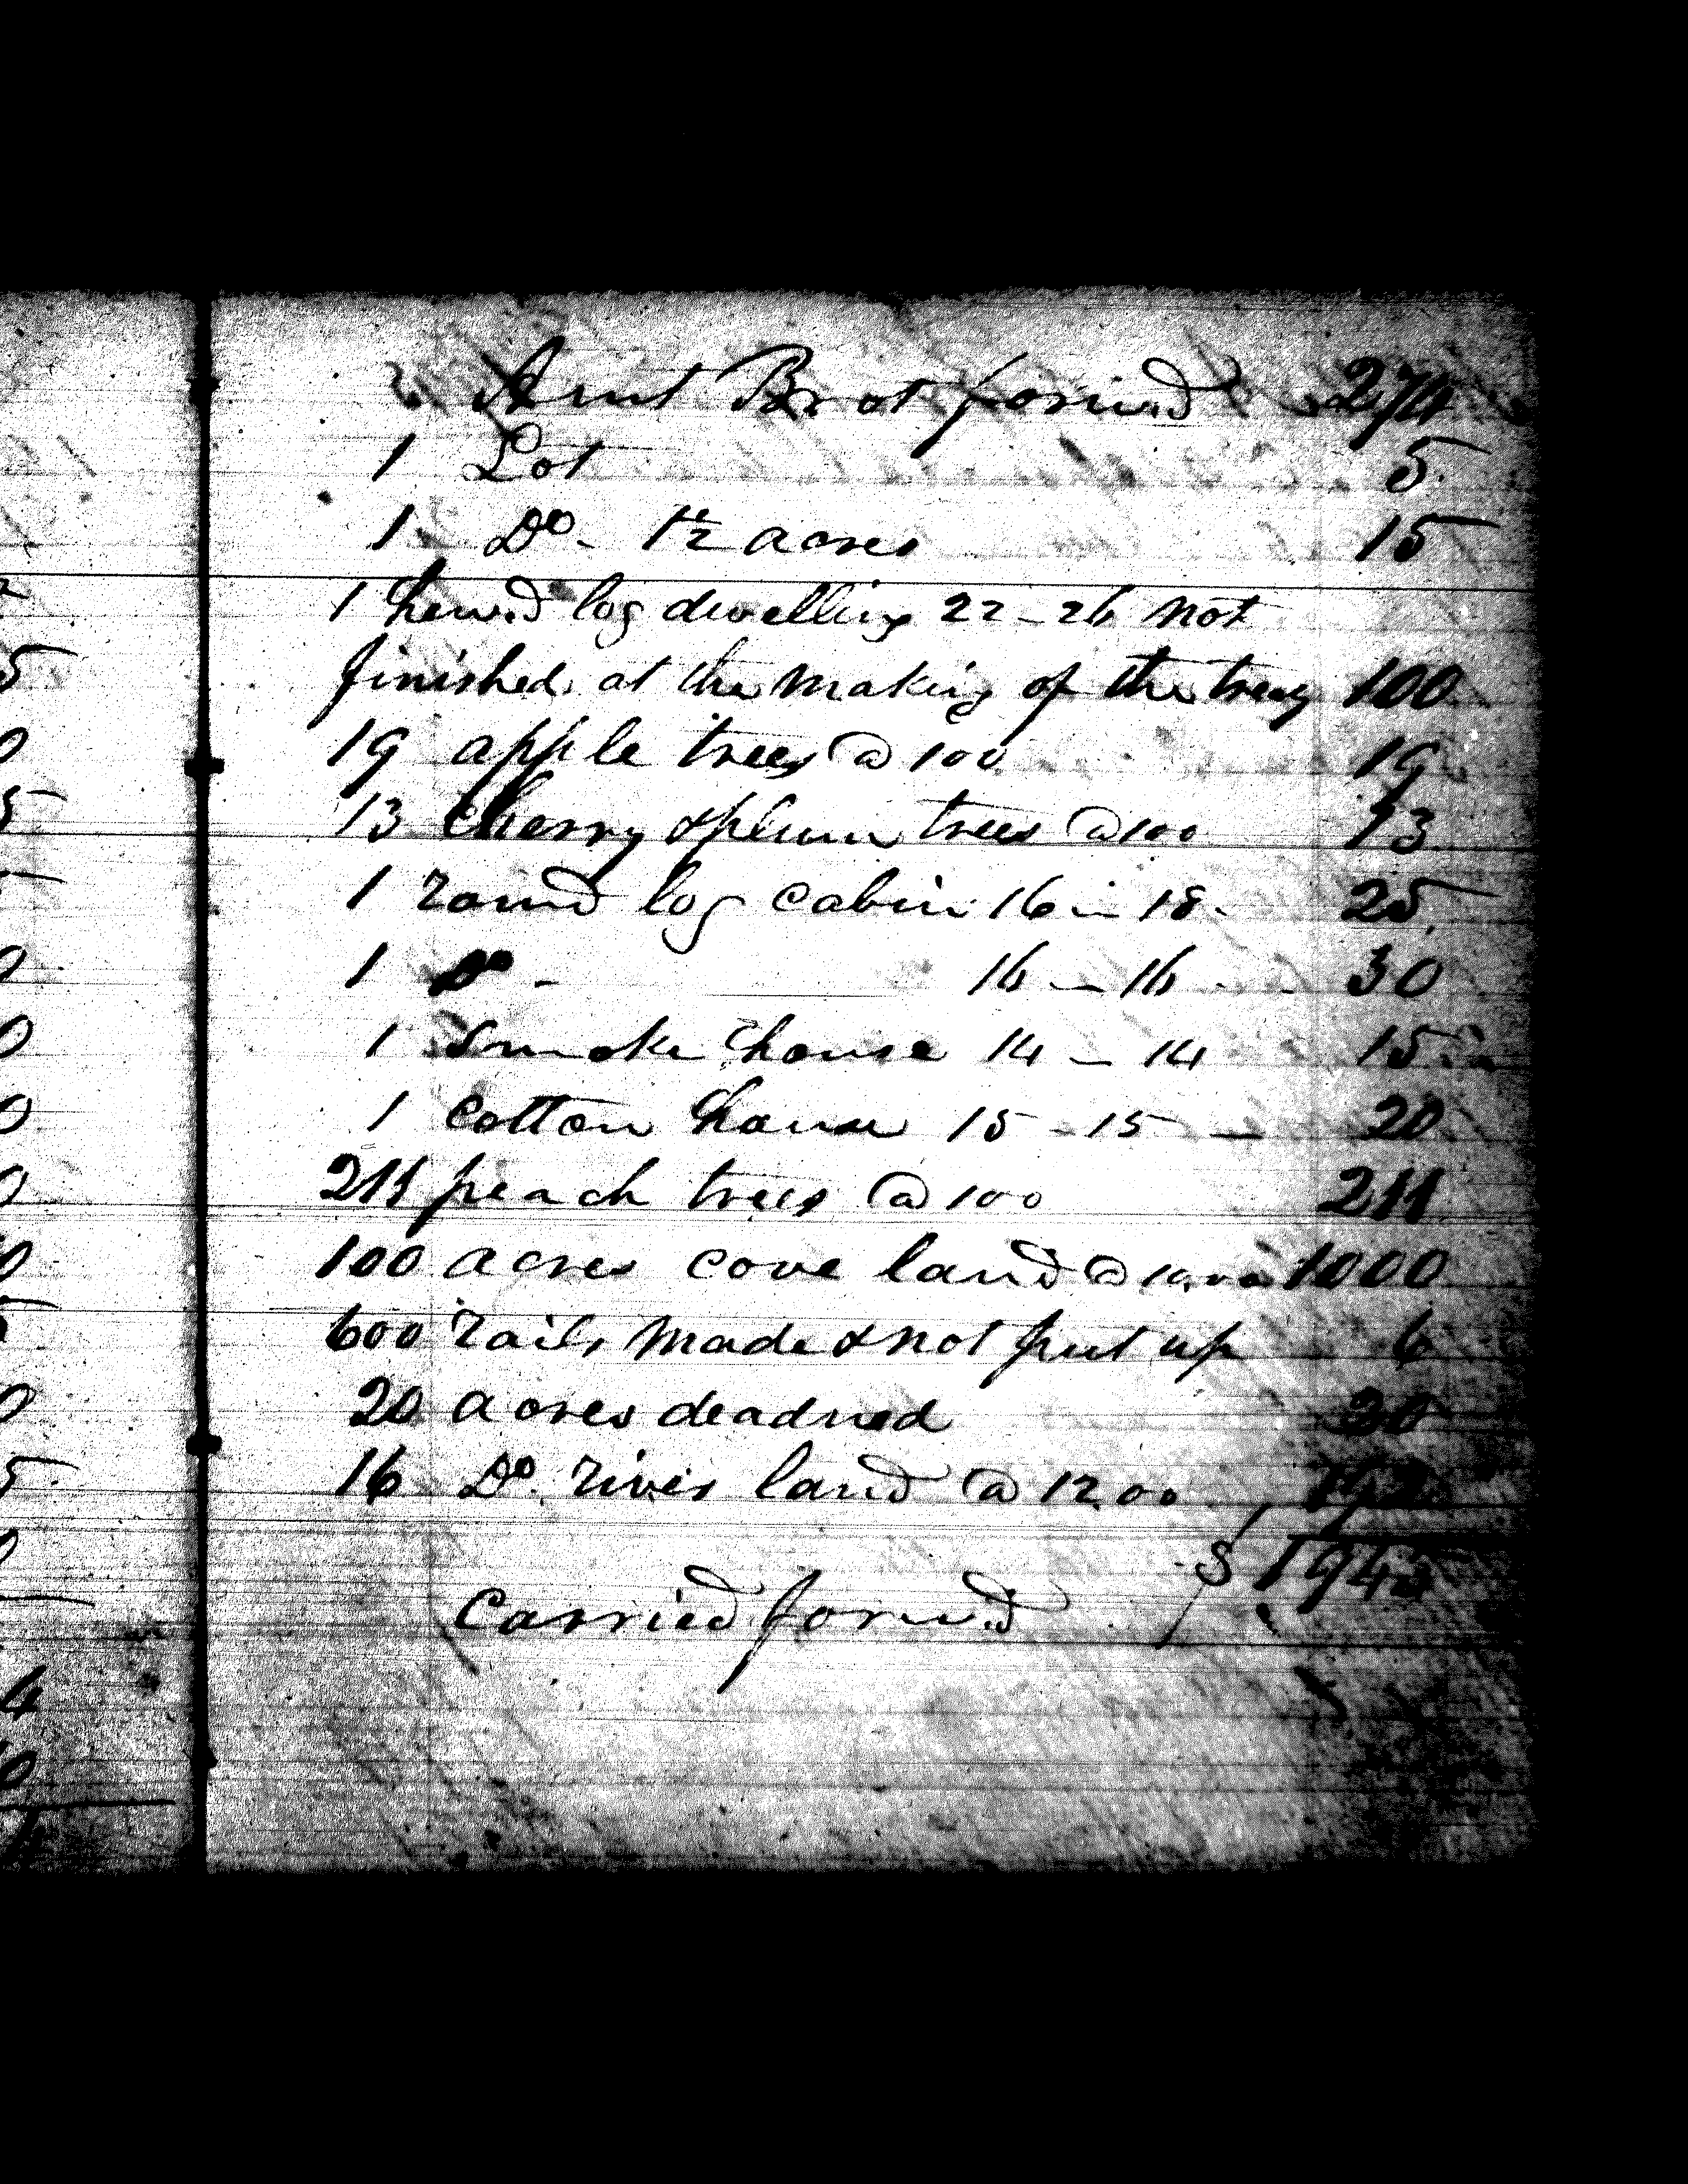 Amt Brot forw.d 274
1 Lot 5
1 Do - 1½ acres 15
1 hew.d log dwelling 22 - 26 not
finished at the making of the treaty 100
19 apple trees @ 100 19
13 cherry & plum trees @ 100 13
1 round log cabin 16 - 18 - 25
1 Do - 16 - 16 - 30
1 smoke house 14 - 14 15
1 cotton house 15 - 15 - 20
211 peach trees @ 100 211
100 acres cove land @ 10,00 1000
600 rails made & not put up 6
20 acres deadned 20
16 Do. river land @ 12,00 192
$ 1945
Carried forw.d